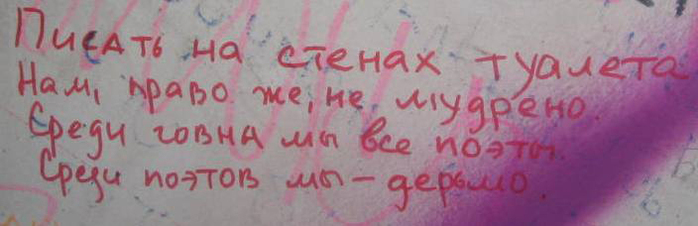 Писать на стенах туалета
Нам, право же, не мудрено.
Среди говна мы все поэты.
Среди поэтов мы - дерьмо.